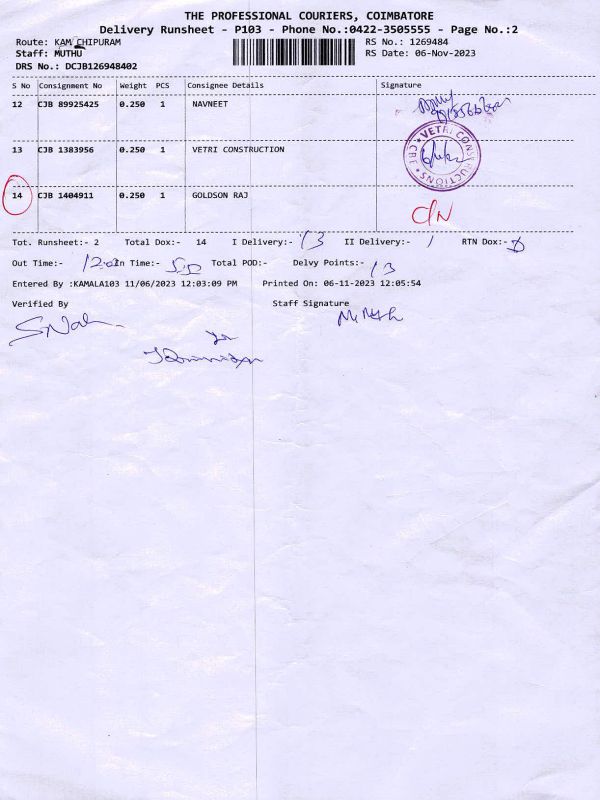 THE PROFESSIONAL COURIERS, COIMBATORE
Delivery Runsheet - P103 - Phone No.:0422-3505555 - Page No.:2
Route: KAM CHIPURAM RS No.: 1269484
Staff: MUTHU RS Date: 06-Nov-2023
DRS No.: DCJB126948402
S No Consignment No Weight PCS Consignee Details Signature
12 CJB 89925425 0.250 1 NAVNEET
13 CJB 1383956 0.250 1 VETRI CONSTRUCTION
VETRI CONSTRUCTIONS CBE
14 CJB 1404911 0.250 1 GOLDSON RAJ
C/N
Tot. Runsheet:- 2 Total Dox:- 14 I Delivery:- 13 II Delivery:- 1 RTN Dox:-
Out Time:- In Time:- Total POD:- Delvy Points:- 13
Entered By :KAMALA103 11/06/2023 12:03:09 PM Printed On: 06-11-2023 12:05:54
Verified By Staff Signature